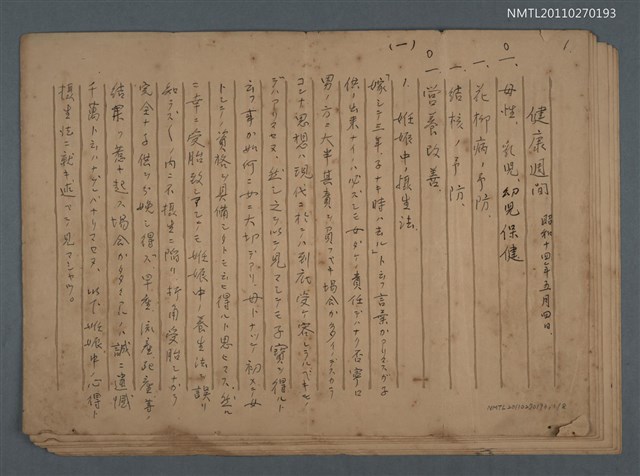 NMTL20110270193
1.
健康週間
昭和十四年五月四日、
一、母性、乳児幼児保健
一、花柳病ノ予防、
一、結核ノ予防、
一、営養改善、
(一)
1. 妊娠中ノ摂生法、
「嫁シテ三年、子ナキ時ハ去ル」ト云フ言葉ガアリマスガ子
供ノ出来ナイノハ必ズシモ女ダケノ責任デハナク否寧ロ
男ノ方ガ大半其責ヲ負フベキ場合ガ多イノデスカラ
コンナ思想ハ現代ニ於テハ到底受ケ容レラルベキモノ
デハアリマセヌ、然シ之ヲ以テ見マシテモ子宝ヲ得ルト
云フ事ガ如何ニ女ニ大切デアリ、母トナッテ初メテ女
トシテノ資格ガ具備シタトモ云ヒ得ルト思ヒマス、然ル
ニ幸ニ受胎致シマシテモ妊娠中ノ養生法ヲ誤リ
知ラズ〱ノ内ニ不摂生ニ陥リ、折角受胎シナガラ
完全ナ子供ヲ分娩シ得ズ、早産流産死産等ノ
結果ヲ惹キ起ス場合ガ多イノハ誠ニ遺憾
千萬ト云ハナケレバナリマセヌ、以下妊娠中ノ心得ト
摂生法ニ就キ述ベテ見マシャウ。